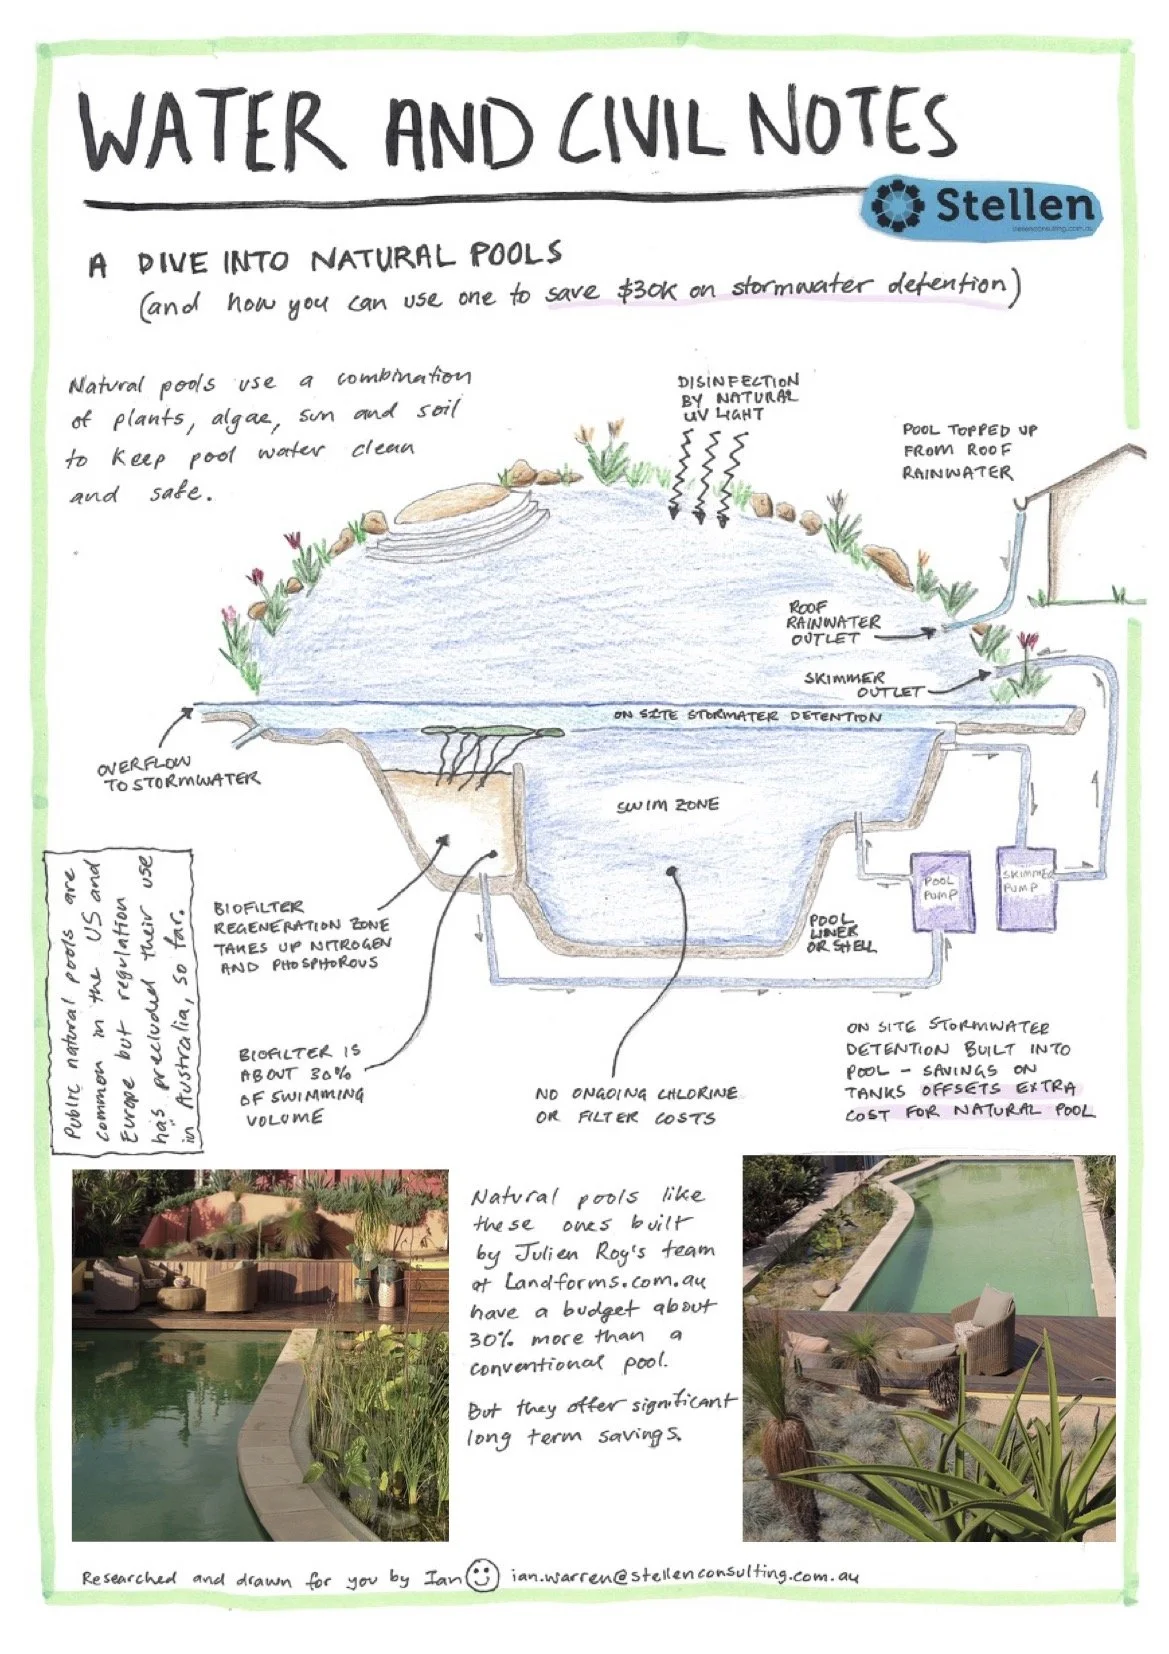 WATER AND CIVIL NOTES
Stellen
stellenconsulting.com.au
A DIVE INTO NATURAL POOLS
(and how you can use one to save $30K on stormwater detention)
Natural pools use a combination
of plants, algae, sun and soil
to keep pool water clean
and safe.
DISINFECTION
BY NATURAL
UV LIGHT
POOL TOPPED UP
FROM ROOF
RAINWATER
ROOF
RAINWATER
OUTLET
SKIMMER
OUTLET
ON SITE STORMATER DETENTION
OVERFLOW
TO STORMWATER
SWIM ZONE
POOL
PUMP
SKIMMER
PUMP
POOL
LINER
OR SHELL
BIOFILTER
REGENERATION ZONE
TAKES UP NITROGEN
AND PHOSPHOROUS
Public natural pools are
common in the US and
Europe but regulation
has precluded their use
in Australia, so far.
BIOFILTER IS
ABOUT 30%
OF SWIMMING
VOLUME
NO ONGOING CHLORINE
OR FILTER COSTS
ON SITE STORMWATER
DETENTION BUILT INTO
POOL - SAVINGS ON
TANKS OFFSETS EXTRA
COST FOR NATURAL POOL
Natural pools like
these ones built
by Julien Roy's team
at Landforms.com.au
have a budget about
30% more than a
conventional pool.
But they offer significant
long term savings.
Researched and drawn for you by Ian ian.warren@stellenconsulting.com.au